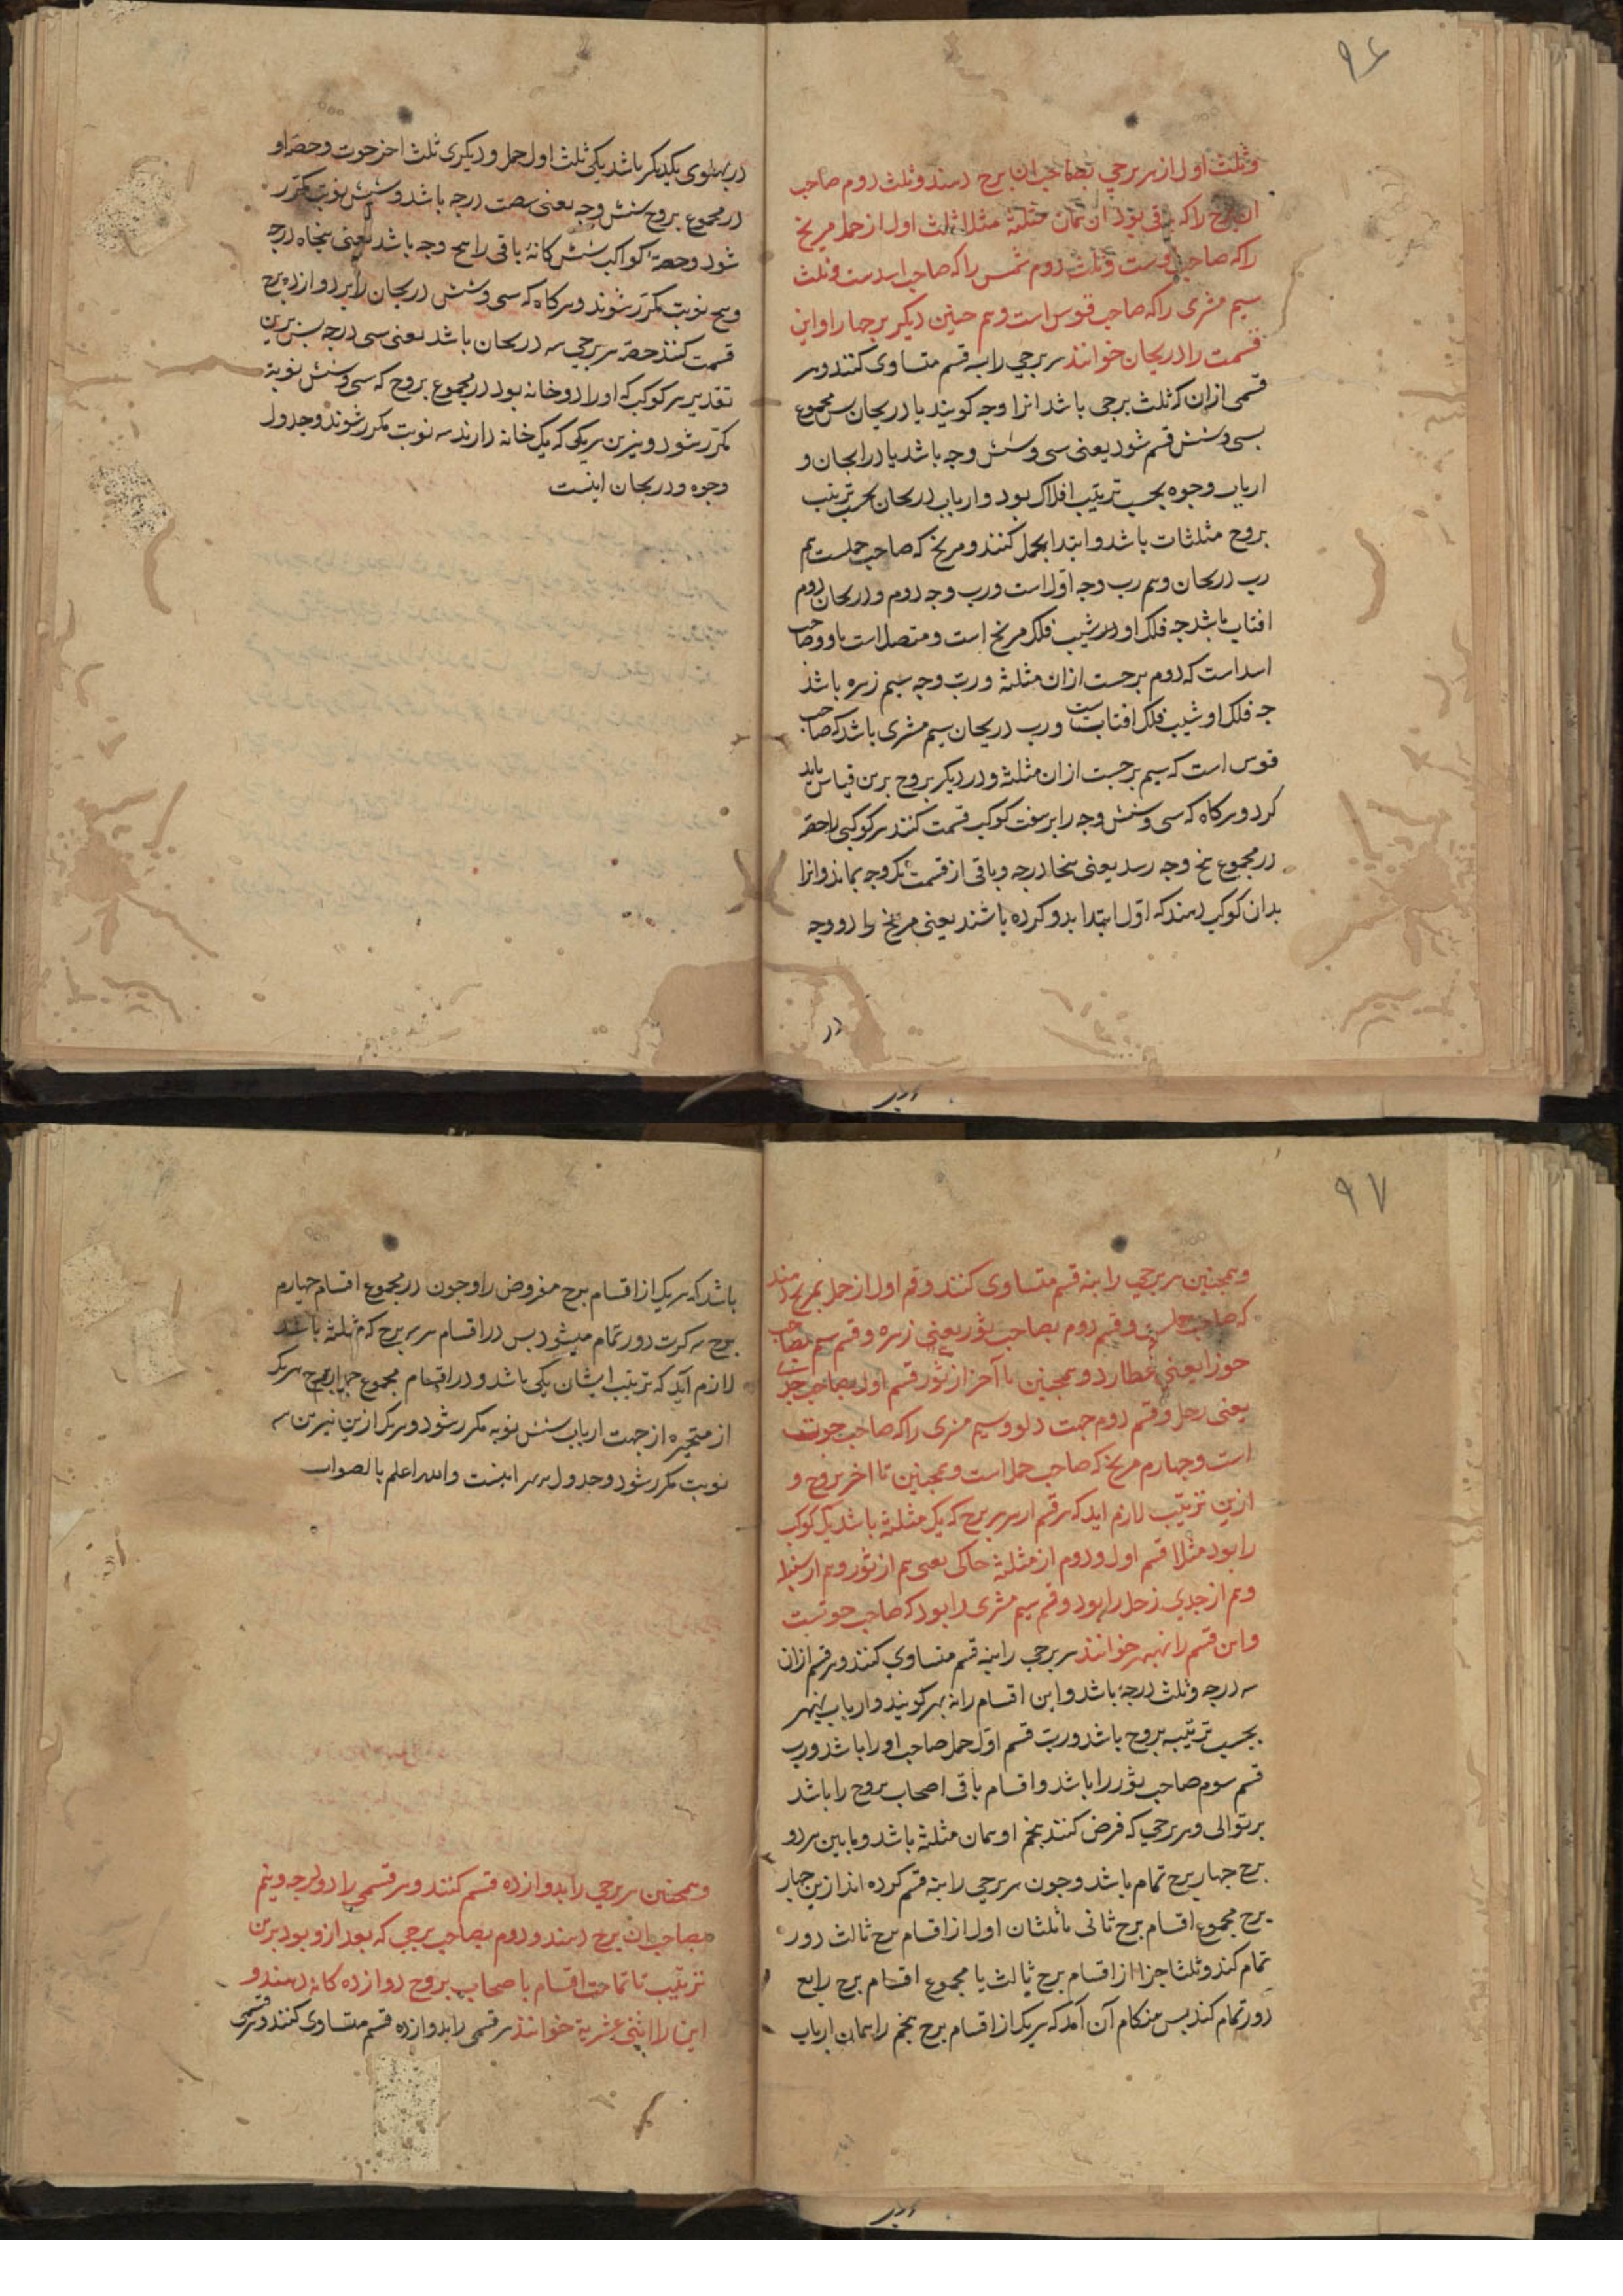 ۹۶
وثلث اول از هر برجی بصاحب ان برج دهند وثلث دوم صاحب
ان برج را که باقی بود از همان مثلثه مثلا ثلث اول از حمل مریخ
را که صاحب اوست وثلث دوم شمس را که صاحب اسدست وثلث
سیم مشری را که صاحب قوس است وهم جنین دیکر برجها را واین
قسمت را دریجان خوانند هر برجی را بسه قسم متساوی کنند وهر
قسمی ازان که ثلث برجی باشد انرا وجه کویند یا دریجان بس مجموع
بسی وشش قسم شود یعنی سی وشش وجه باشد یا درایجان و
ارباب وجوه بحسب ترتیب افلاک بود وارباب دریحان بحسب ترتیب
بروج مثلثات باشد وابتدا بحمل کنند ومریخ که صاحب حملست هم
رب دریحان وهم رب وجه اول است ورب وجه دوم ودریحان دوم
افتاب باشد جه فلک او در شیب فلک مریخ است ومتصل است باو وصاحب
اسد است که دوم برجست ازان مثلثه ورب وجه سیم زهره باشد
جه فلک او شیب فلک افتابست ورب دریحان سیم مشری باشد که صاحب
قوس است که سیم برجست ازان مثلثه ودر دیکر بروج برین قیاس باید
کرد وهرکاه که سی وشش وجه را بر هفت کوکب قسمت کنند هر کوکبی را حصه
در مجموع بنج وجه رسد یعنی بنجاه درجه وباقی از قسمت یک وجه بماند وانرا
بدان کوکب دهند که اول ابتدا بدو کرده باشند یعنی مریخ را دو وجه
در
در بهلوی یکدیکر باشد یکی ثلث اول حمل ودیکری ثلث اخر حوت وحصه او
در مجموع بروج شش وجه یعنی شصت درجه باشد وشش نوبت مکرر
شود وحصهٔ کواکب شش کانهٔ باقی را بنج وجه باشد یعنی بنجاه درجه
وبنج نوبت مکرر شوند وهرکاه که سی وشش دریجان را بر دوازده برج
قسمت کنند حصه هر برجی سه دریجان باشد یعنی سی درجه بس برین
تقدیر هر کوکب که او را دو خانه بود در مجموع بروج که سی وشش نوبة
مکرر شود ونیرین هر یکی که یک خانه دارند سه نوبت مکرر شوند وجدول
وجوه ودریجان اینست
۹۷
وهمجنین هر برجی را بنه قسم متساوی کنند وقسم اول از حمل بمریخ دهند
که صاحب حملست وقسم دوم بصاحب ثور یعنی زهره وقسم سیم بصاحب
جوزا یعنی عطارد وهمجنین تا آخر از ثور قسم اول بصاحب جدی
یعنی زحل وقسم دوم جهت دلو وسیم مشری را که صاحب حوت
است وجهارم مریخ که صاحب حمل است وهمجنین تا اخر بروج و
ازین ترتیب لازم اید که هر قسم از هر برج که یک مثلثه باشد یک کوکب
را بود مثلا قسم اول ودوم از مثلثه خاکی یعنی هم از ثور وهم از سنبله
وهم از جدی زحل را بود وقسم سیم مشری را بود که صاحب حوتست
واین قسم را نهبهر خوانند هر برجی را بنه قسم متساوی کنند وهر قسم ازان
سه درجه وثلث درجهٔ باشد واین اقسام را نه بهر کویند وارباب نهبهر
بحسب ترتیب بروج باشد ورب قسم اول حمل صاحب او را باشد ورب
قسم سوم صاحب ثور را باشد واقسام باقی اصحاب بروج را باشد
بر توالی وهر برجی که فرض کنند بنجم او همان مثلثه باشد وما بین هر دو
برج جهار برج تمام باشد وجون هر برجی را بنه قسم کرده اند ازین جهار
برج مجموع اقسام برج ثانی با ثلثان اول از اقسام برج ثالث دور
تمام کند وثلثا جزا از اقسام برج ثالث با مجموع اقسام برج رابع
دور تمام کند بس هنکام آن آمد که هر یک از اقسام برج بنجم را همان ارباب
باشد که هر یک از اقسام برج مفروض را وجون در مجموع اقسام جهارم
برج سه کرت دور تمام میشود بس در اقسام هر برج که مثلثه باشد
لازم آید که ترتیب ایشان یکی باشد ودر اقسام مجموع جهار برج هر یک
از متحیره از جهت ارباب شش نوبه مکرر شود وهر یک ازین نیرین سه
نوبت مکرر شود وجدول بهر اینست والله اعلم بالصواب
وهمجنین هر برجی را بدوازده قسم کنند وهر قسمی را دو درجه ونیم
بصاحب ان برج دهند ودوم بصاحب برجی که بعد ازو بود برین
ترتیب تا تمامت اقسام باصحاب بروج دوازده کانه دهند و
این را اثنی عشریة خوانند هر قسمی را بدوازده قسم متساوی کنند وهر قسمی